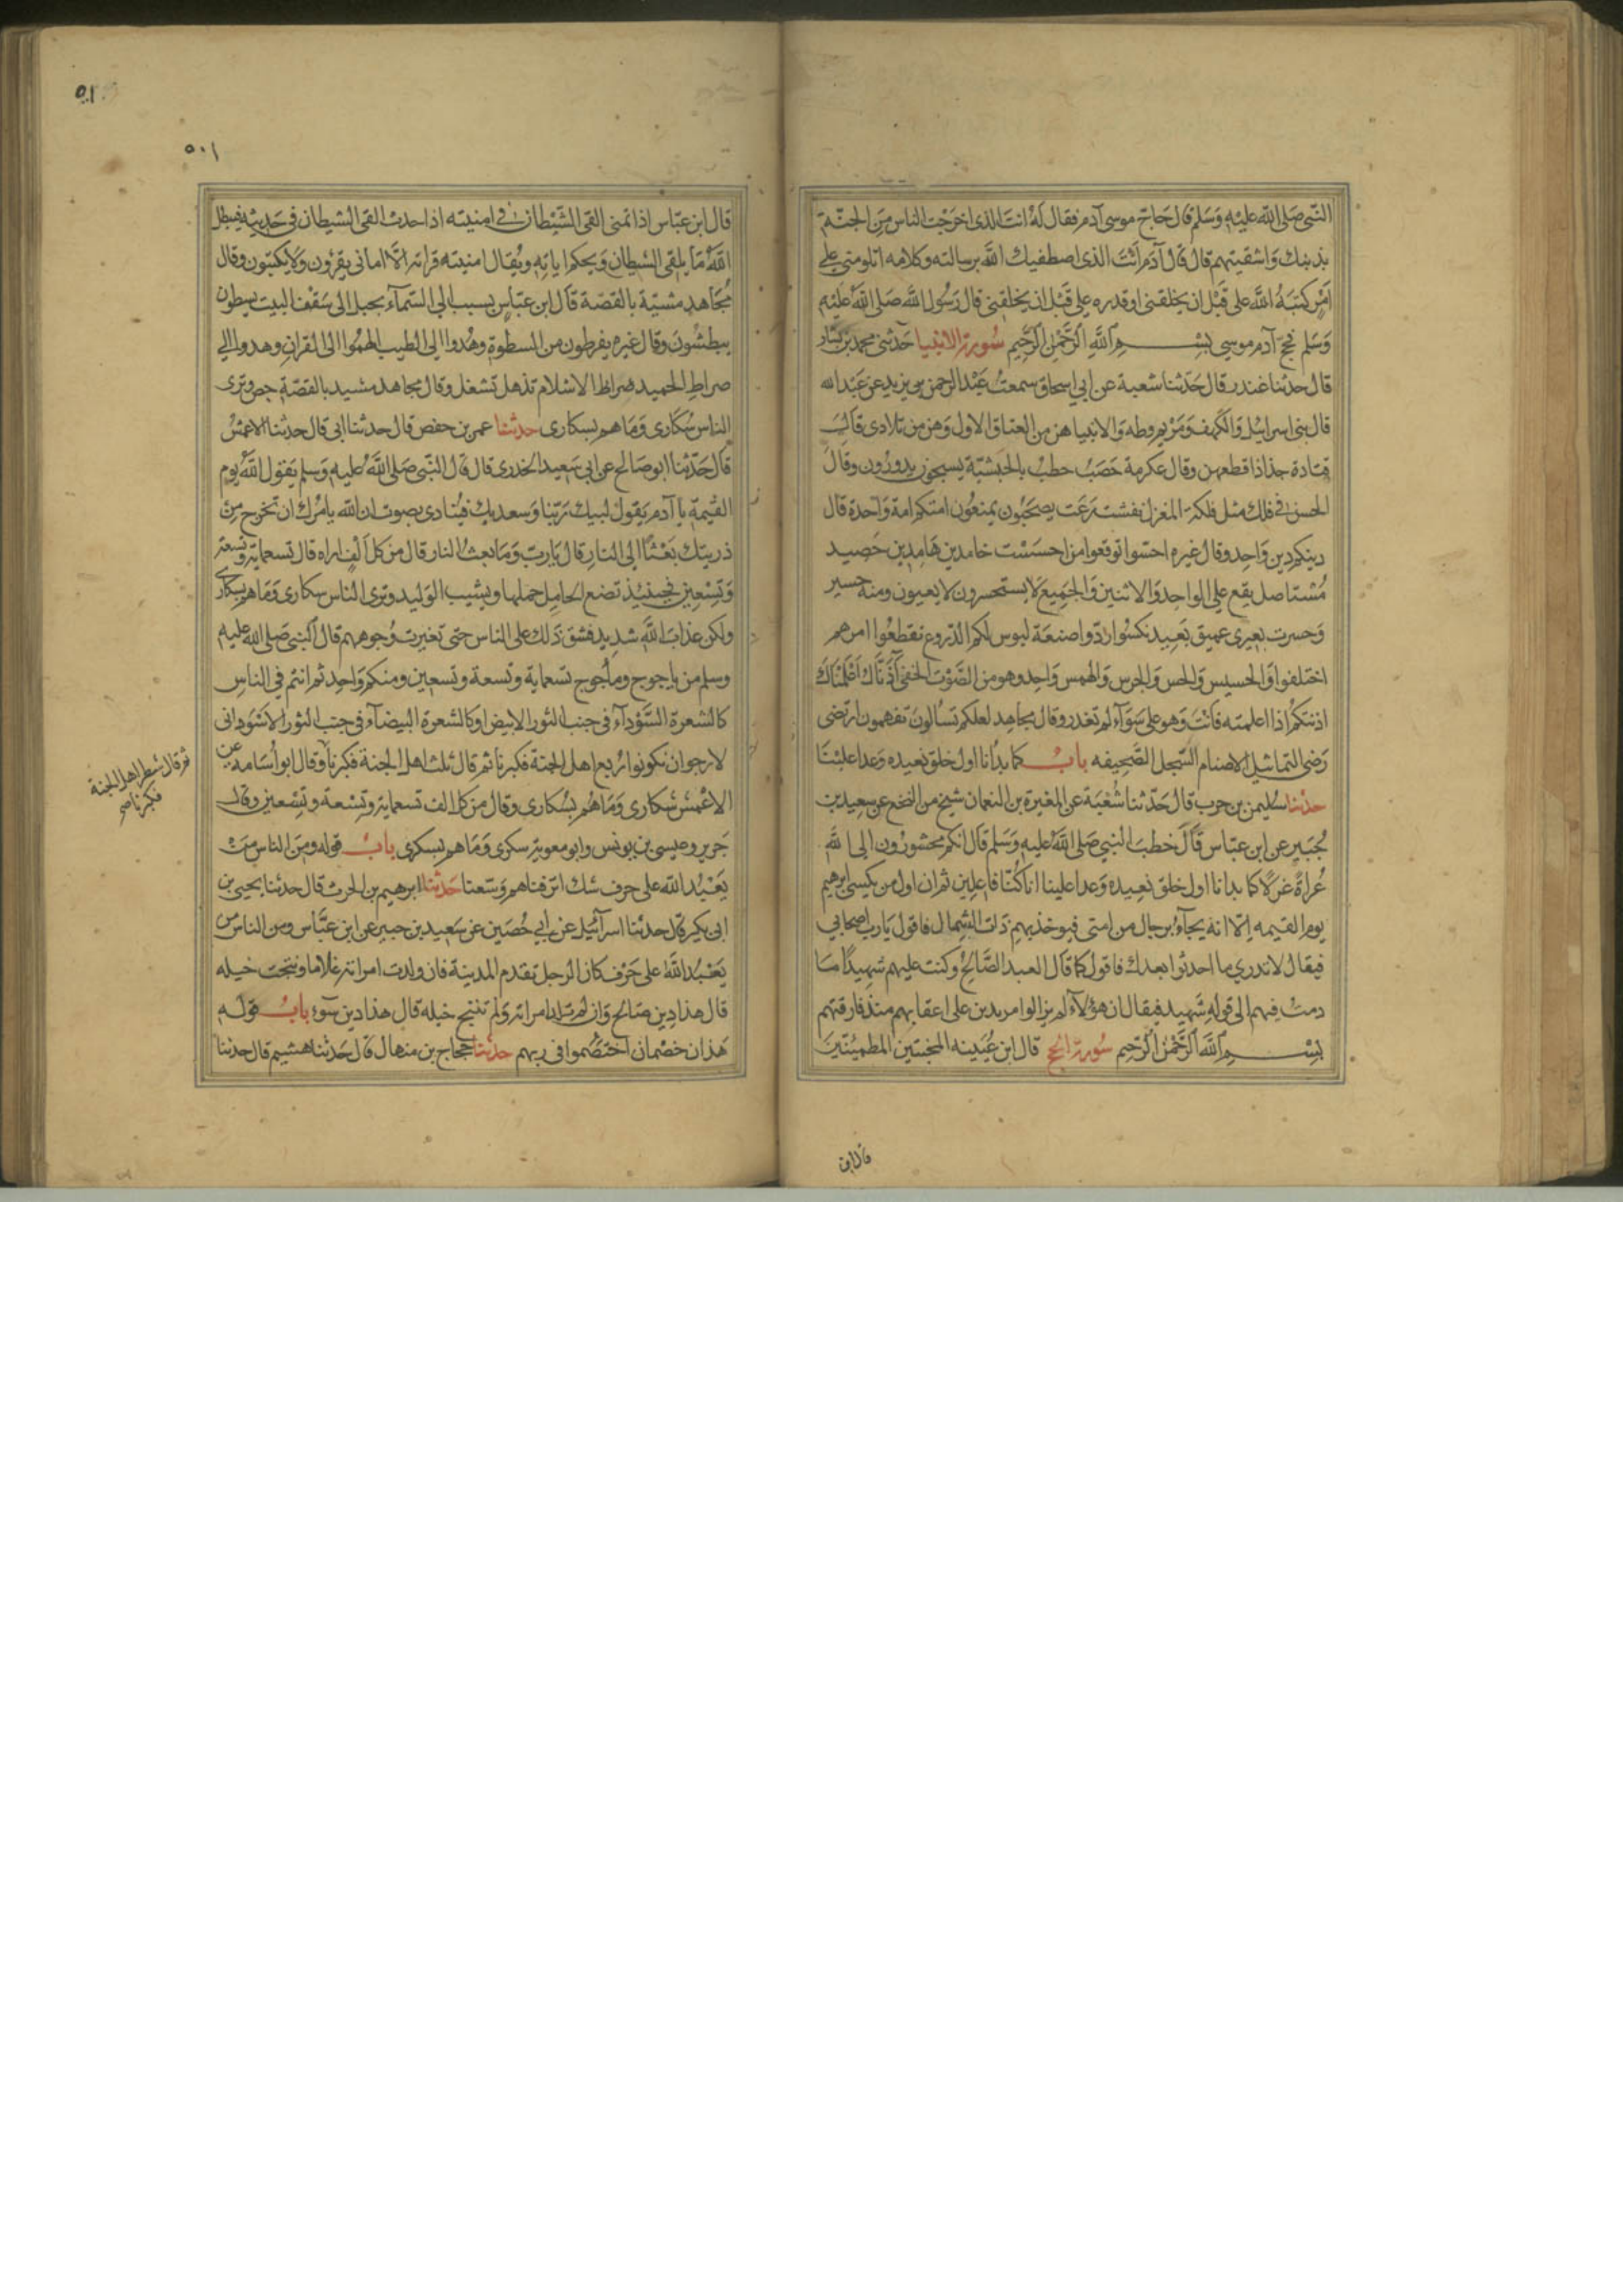 النبي صلى الله عليه وسلم قال حاج موسى آدم فقال له انت الذى اخرجت الناس من الجنة
بذنبك واشقيتهم قال قال آدم انت الذى اصطفيك الله برسالته وكلامه اتلومني على
امر كتبه الله على قبل ان يخلقنى او قدره على قبل ان يخلقنى قال رسول الله صلى الله عليه
وسلم فحج آدم موسى بسم الله الرحمن الرحيم سورة الانبيا حدثنى محمد بن بشار
قال حدثنا غندر قال حدثنا شعبة عن ابي اسحاق سمعت عبد الرحمن بن يزيد عن عبد الله
قال بنى اسرائيل والكهف ومريم وطه والانبيا هن من العتاق الاول وهن من تلادى قال
قتادة جذاذا قطعهن وقال عكرمة حصب حطب بالحبشية يسبحون يدورون وقال
الحسن فى فلك مثل فلكة المغزل نفشت رعت يصحبون يمنعون امتكم امة واحدة قال
دينكم دين واحد وقال غيره احسوا توقعوا من احسست خامدين هامدين حصيد
مستاصل يقع على الواحد والاثنين والجميع لا يستحسرون لا يعيون ومنه حسير
وحسرت بعيرى عميق بعيد نكسوا ردوا صنعة لبوس لكم الدروع تقطعوا امرهم
اختلفوا والحسيس والحس والجرس والهمس واحد وهو من الصوت الخفى آذناك اعلمناك
اذنتكم اذا اعلمته فانت وهو على سوآء لم تغدر وقال مجاهد لعلكم تسالون تفهمون ارتضى
رضى التماثيل الاصنام السجل الصحيفه باب كما بدانا اول خلق نعيده وعدا علينا
حدثنا سليمن بن حرب قال حدثنا شعبة عن المغيرة بن النعمان شيخ من النخع عن سعيد بن
جبير عن ابن عباس قال خطب النبي صلى الله عليه وسلم قال انكم محشورون الى الله
عراة غرلا كما بدانا اول خلق نعيده وعدا علينا انا كنا فاعلين ثم ان اول من يكسى ابرهيم
يوم القيمه الا انه يجآء برجال من امتى فيوخذ بهم ذات الشمال فاقول يا رب اصحابي
فيقال لا تدري ما احدثوا بعدك فاقول كما قال العبد الصالح وكنت عليهم شهيدا ما
دمت فيهم الى قوله شهيد فيقال ان هؤلآء لم يزالوا مرتدين على اعقابهم منذ فارقتهم
بسم الله الرحمن الرحيم سورة الحج قال ابن عيينه المخبتين المطمئنين
قال ابن
٥٠١
قال ابن عباس اذا تمنى القى الشيطان فى امنيته اذا حدث القى الشيطان فى حديثه فيبطل
الله ما يلقى الشيطان ويحكم اياته ويقال امنيته قراته الا امانى يقرؤن ولا يكتبون وقال
مجاهد مشيدة بالقصة قال ابن عباس بسبب الى السمآء بحبل الى سقف البيت يسطون
يبطشون وقال غيره يفرطون من السطوة وهدوا الى الطيب الهموا الى القران وهدوا الى
صراط الحميد صراط الاسلام تذهل تشغل وقال مجاهد مشيد بالقصة جص وترى
الناس سكارى وما هم بسكارى حدثنا عمر بن حفص قال حدثنا ابى قال حدثنا الاعمش
قال حدثنا ابو صالح عن ابى سعيد الخدرى قال قال النبى صلى الله عليه وسلم يقول الله يوم
القيمة يا آدم يقول لبيك ربنا وسعديك فينادى بصوت ان الله يامرك ان تخرج من
ذريتك بعثا الى النار قال يا رب وما بعث النار قال من كل الف اراه قال تسعماية وتسعة
وتسعين فحينئذ تضع الحامل حملها ويشيب الوليد وترى الناس سكارى وما هم بسكارى
ولكن عذاب الله شديد فشق ذلك على الناس حتى تغيرت وجوههم قال النبى صلى الله عليه
وسلم من ياجوج وماجوج تسعماية وتسعة وتسعين ومنكم واحد ثم انتم فى الناس
كالشعرة السودآء فى جنب الثور الابيض او كالشعرة البيضآء فى جنب الثور الاسود انى
لارجوا ان تكونوا ربع اهل الجنة فكبرنا ثم قال ثلث اهل الجنة فكبرنا وقال ابو اسامه عن
الاعمش سكارى وما هم بسكارى وقال من كل الف تسعماية وتسعة وتسعين وقال
جرير وعيسى بن يونس وابو معوية سكرى وما هم بسكرى باب قوله ومن الناس من
يعبد الله على حرف شك اترفناهم وسعنا حدثنا ابرهيم بن الحرث قال حدثنا يحيى بن
ابى بكير قال حدثنا اسرآئيل عن ابي حصين عن سعيد بن جبير عن ابن عباس ومن الناس من
يعبد الله على حرف كان الرجل يقدم المدينة فان ولدت امراته غلاما ونتجت خيله
قال هذا دين صالح وان لم تلد امراته ولم تنتج خيله قال هذا دين سوء باب قوله
هذان خصمان اختصموا فى ربهم حدثنا حجاج بن منهال قال حدثنا هشيم قال حدثنا
ثم قال شطر اهل الجنة
فكبرنا صح